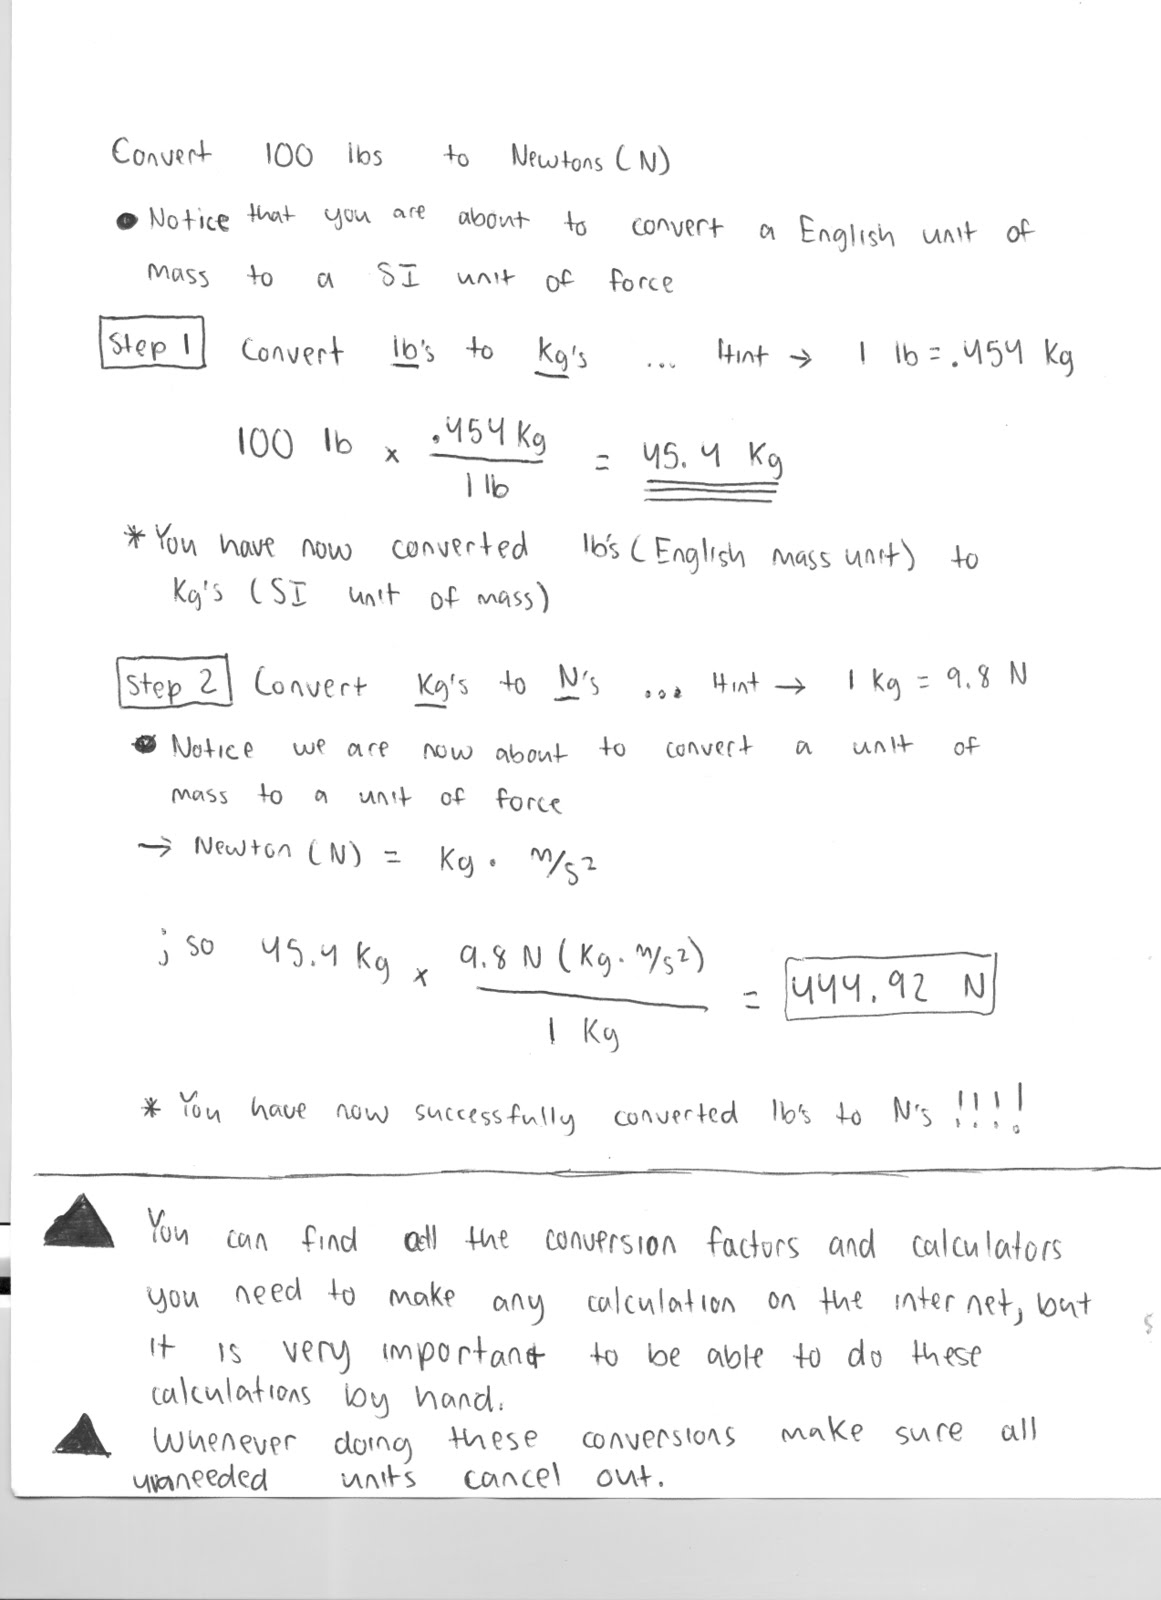 Convert 100 lbs to Newtons (N)
● Notice that you are about to convert a English unit of
mass to a SI unit of force
Step 1 Convert lb's to Kg's ... Hint → 1 lb = .454 Kg
100 lb x .454 Kg / 1 lb = 45.4 Kg
* You have now converted lb's (English mass unit) to
Kg's (SI unit of mass)
Step 2 Convert Kg's to N's ... Hint → 1 Kg = 9.8 N
● Notice we are now about to convert a unit of
mass to a unit of force
→ Newton (N) = Kg · m/s²
; so 45.4 Kg x 9.8 N (Kg · m/s²) / 1 Kg = 444.92 N
* You have now successfully converted lb's to N's !!!!
▲ You can find all the conversion factors and calculators
you need to make any calculation on the internet, but
it is very important to be able to do these
calculations by hand.
▲ Whenever doing these conversions make sure all
unneeded units cancel out.